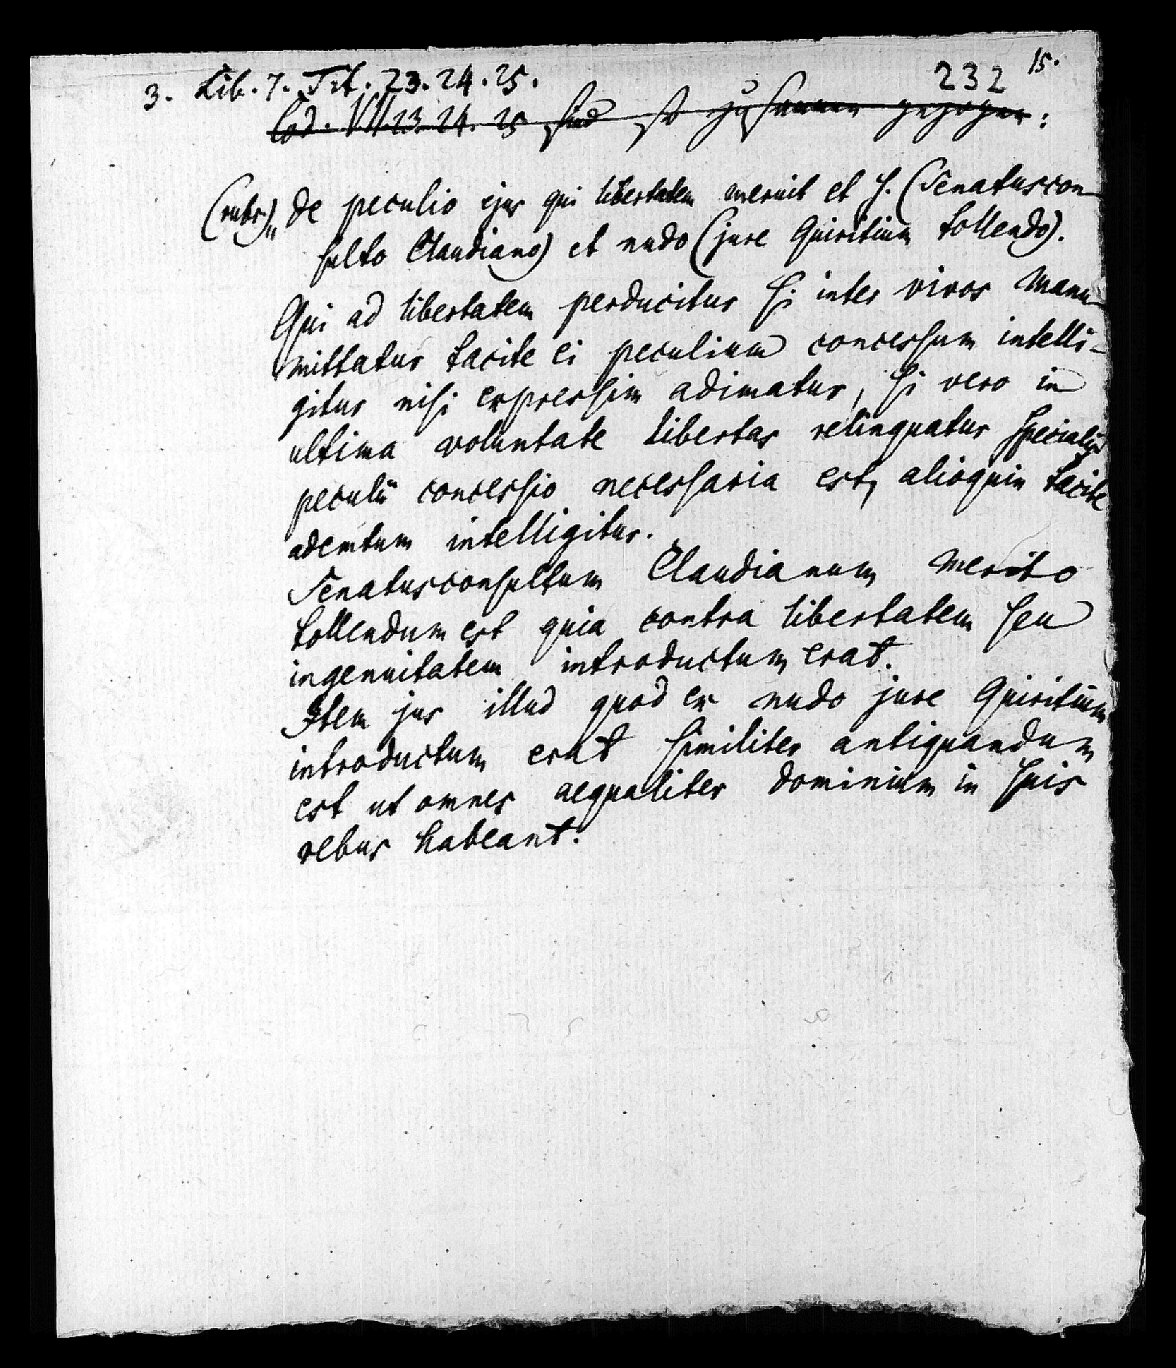 232 15.
3. Lib. 7. Tit. 23. 24. 25.
Cod. VII 23. 24. 25 sind so zusammen gezogen:
(rubr) „De peculio ejus qui libertatem meruit et S. (Senatuscon-
sulto Claudiano) et nudo (jure Quiritium tollendo).
Qui ad libertatem perducitur si inter vivos manu-
mittatur tacite ei peculium concessum intelli-
gitur nisi expressim adimatur, si vero in
ultima voluntate libertas relinquatur specialis
peculii concessio necessaria est, alioquin tacite
ademtum intelligitur.
Senatusconsultum Claudianum merito
tollendum est quia contra libertatem seu
ingenuitatem introductum erat.
Item jus illud quod ex nudo jure Quiritium
introductum erat similiter antiquandum
est ut omnes aequaliter dominium in suis
rebus habeant.